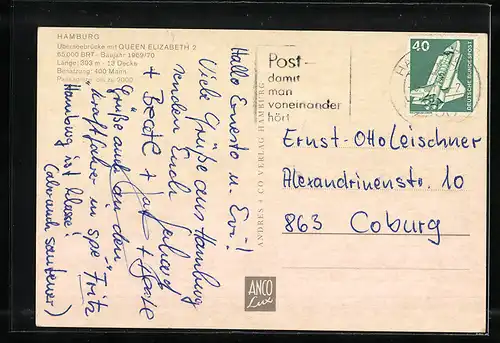 HAMBURG
Überseebrücke mit QUEEN ELIZABETH 2
65.000 BRT - Baujahr 1969/70
Länge: 293 m - 13 Decks
Besatzung: 400 Mann
Passagiere bis zu 2000
Hallo Ernesto u. Evi!
Viele Grüße aus Hamburg
senden Euch Gerhard
+ Beate +
Grüße auch an den
"Kraftfahrer in spe" Fritz
Hamburg ist klasse!
(aber auch sauteuer)
ANDRES + CO VERLAG HAMBURG
ANCO
Lux
Post-
damit
man
voneinander
hört
40
DEUTSCHE BUNDESPOST
Ernst-Otto Leischner
Alexandrinenstr. 10
863 Coburg